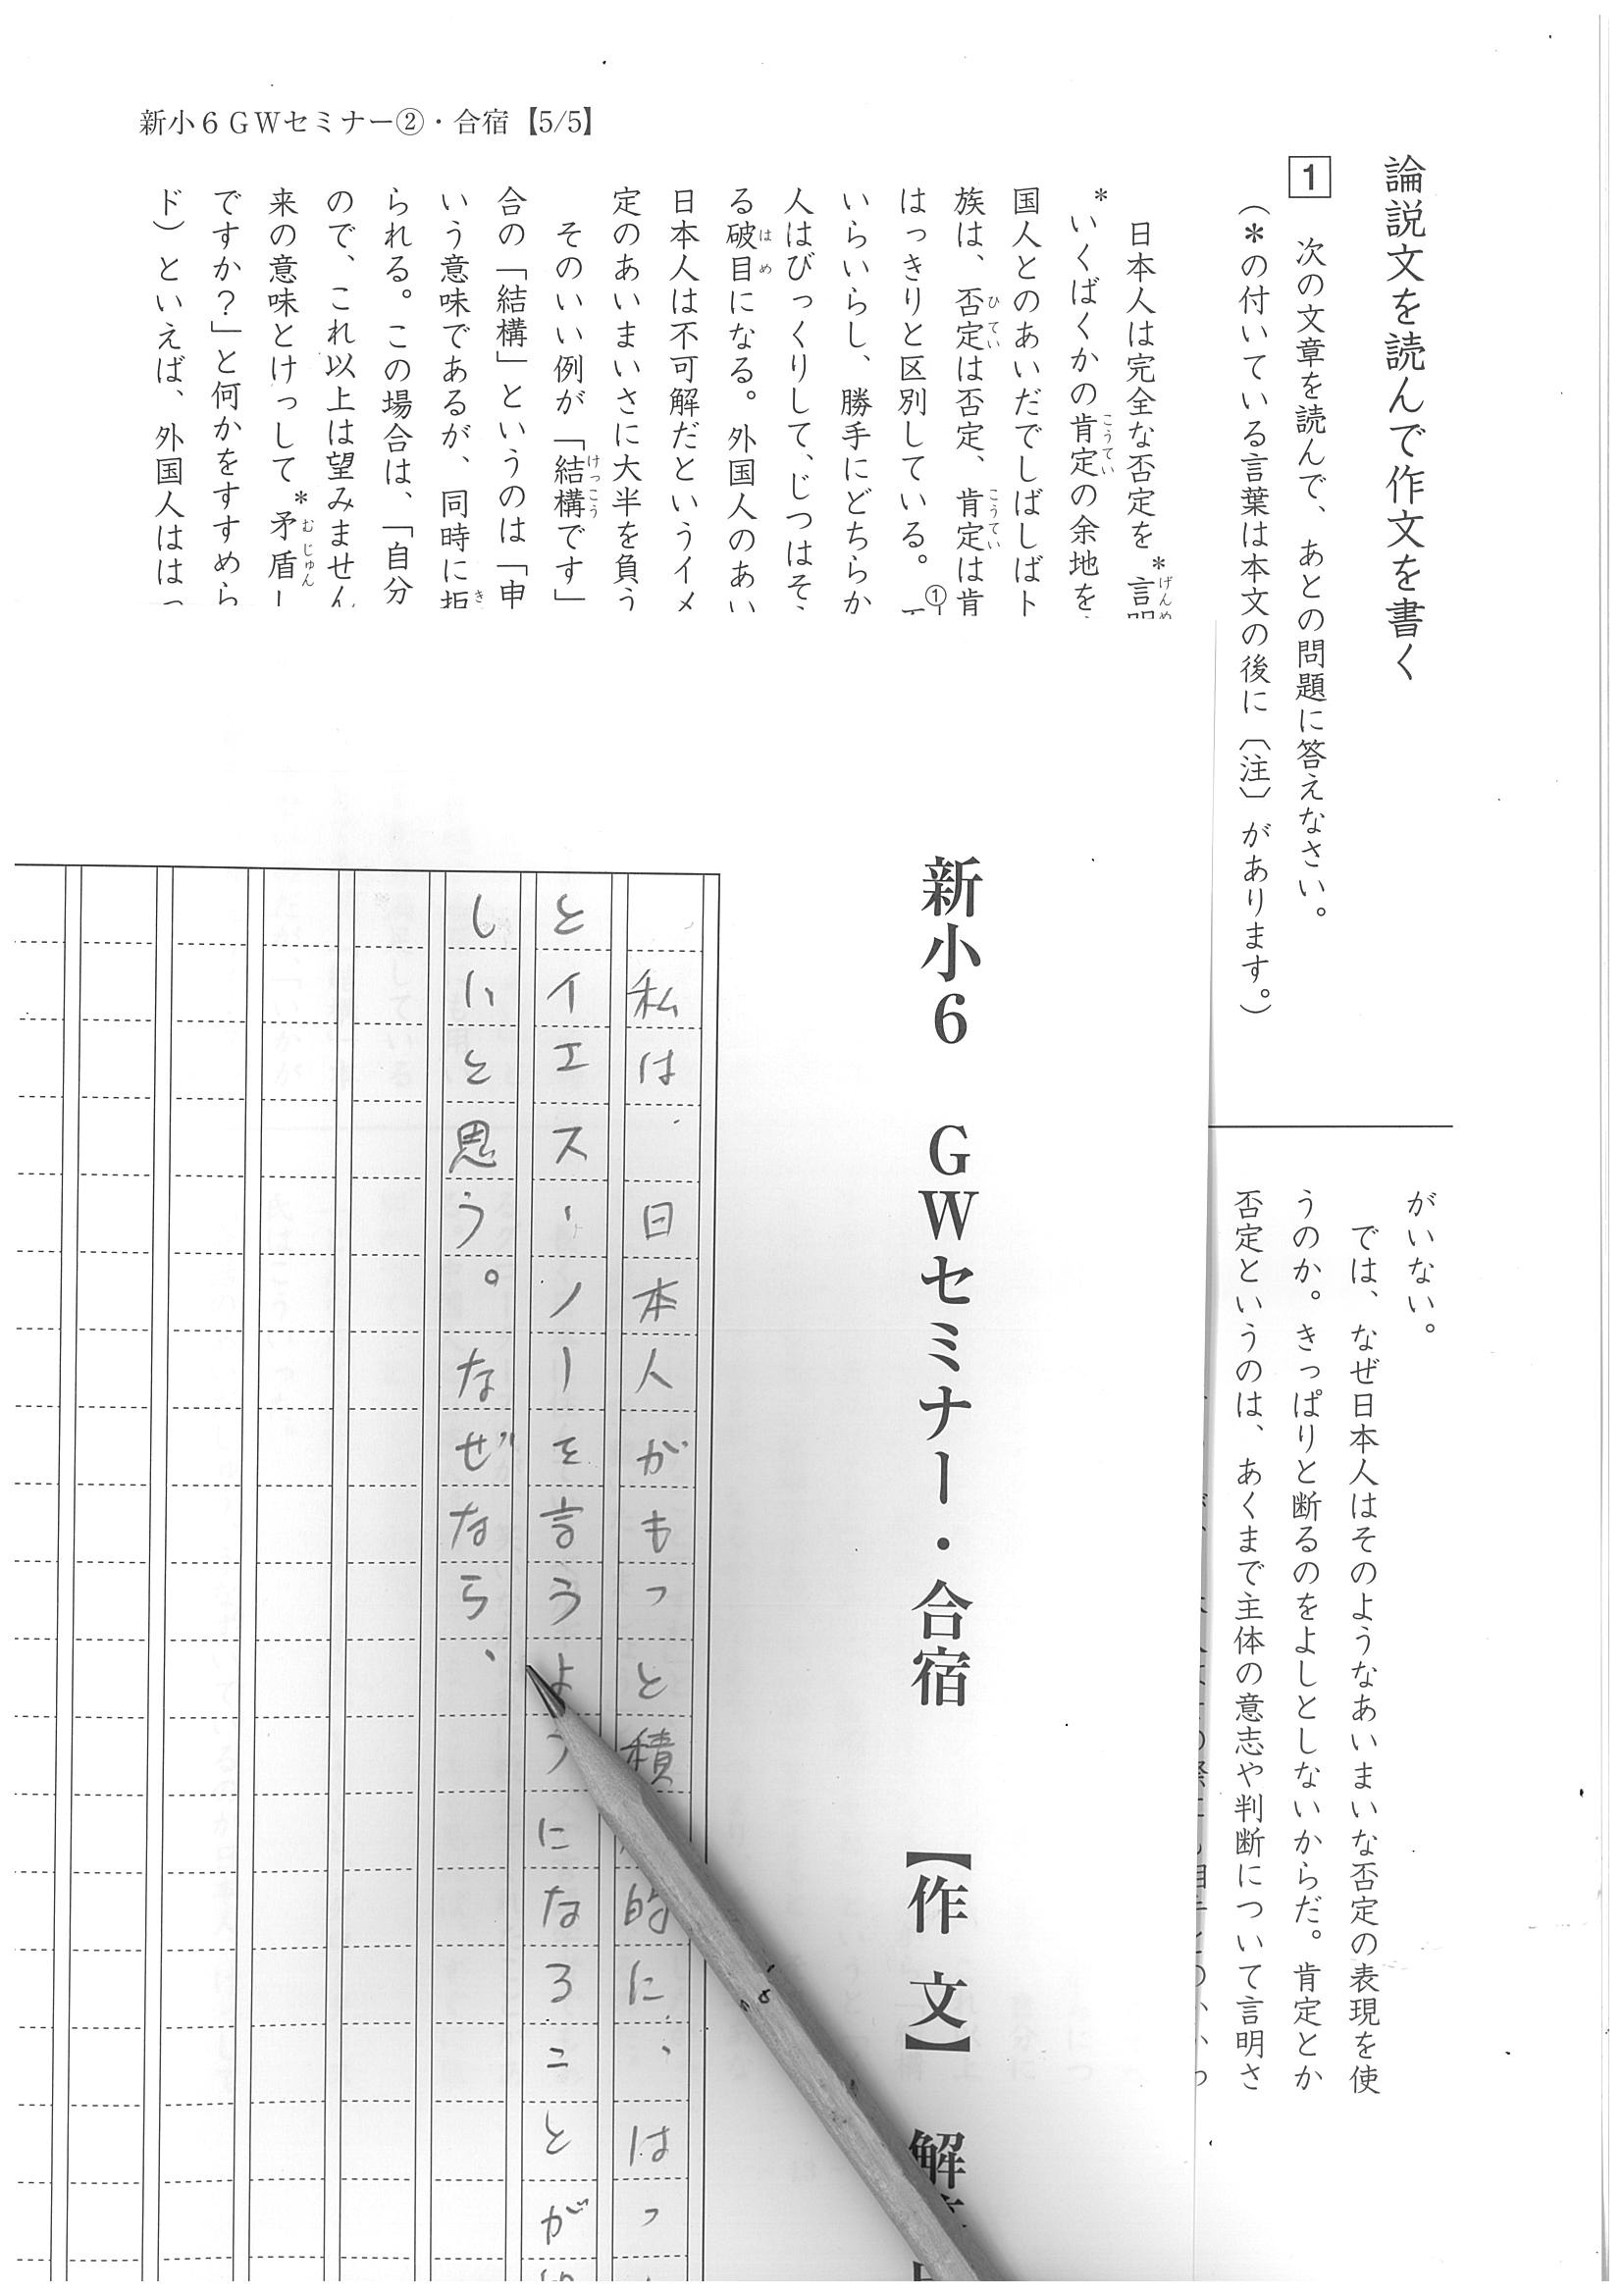 新小6GWセミナー②・合宿【5/5】
論説文を読んで作文を書く
1 次の文章を読んで、あとの問題に答えなさい。
(*の付いている言葉は本文の後に〔注〕があります。)
日本人は完全な否定を*言明
*いくばくかの肯定の余地を
国人とのあいだでしばしばト
族は、否定は否定、肯定は肯
はっきりと区別している。①
いらいらし、勝手にどちらか
人はびっくりして、じつはそ
る破目になる。外国人のあい
日本人は不可解だというイメ
定のあいまいさに大半を負う
そのいい例が「結構です」
合の「結構」というのは「申
いう意味であるが、同時に拒
られる。この場合は、「自分
ので、これ以上は望みません
来の意味とけっして*矛盾し
ですか?」と何かをすすめら
ド)といえば、外国人ははっ
がいない。
では、なぜ日本人はそのようなあいまいな否定の表現を使
うのか。きっぱりと断るのをよしとしないからだ。肯定とか
否定というのは、あくまで主体の意志や判断について言明さ
新小6 GWセミナー・合宿 【作文】 解
私は、日本人がもっと積 的に、はっ
とイエス・ノーを言うようになることが
しいと思う。なぜなら、